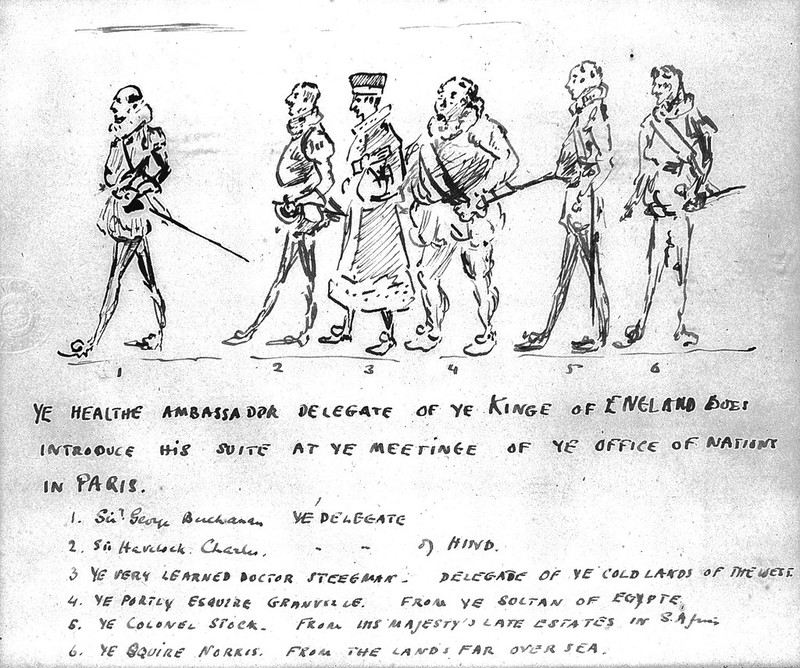 1 2 3 4 5 6
YE HEALTHE AMBASSADOR DELEGATE OF YE KINGE OF ENGLAND DOES
INTRODUCE HIS SUITE AT YE MEETINGE OF YE OFFICE OF NATIONS
IN PARIS.
1. Sir George Buchanan YE DELEGATE
2. Sir Havelock Charles. - - of HIND.
3 YE VERY LEARNED DOCTOR STEEGMAN. DELEGATE OF YE COLD LANDS OF THE WEST
4. YE PORTLY ESQUIRE GRANVILLE. FROM YE SOLTAN OF EGYPTE,
5. YE COLONEL STOCK. FROM HIS MAJESTY'S LATE ESTATES IN S. Africa
6. YE SQUIRE NORRIS. FROM THE LANDS FAR OVER SEA.